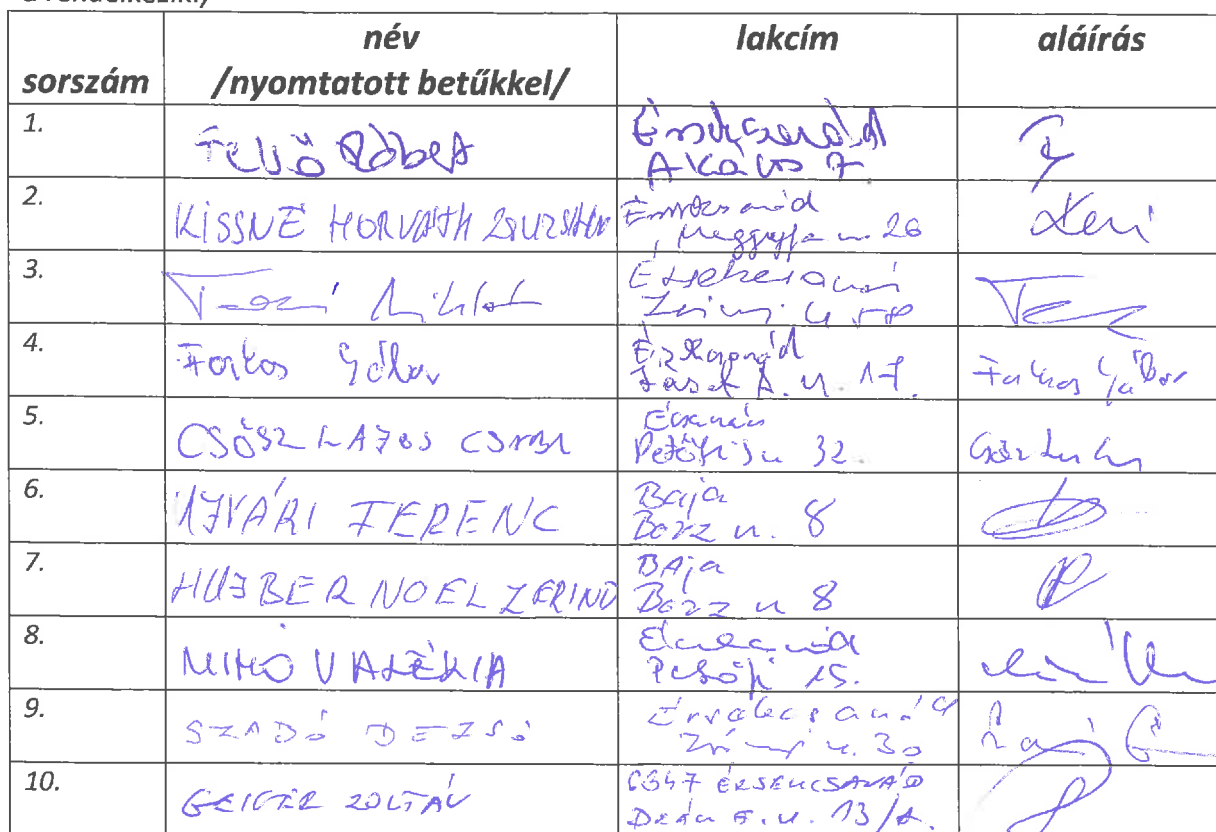 név lakcím aláírás
sorszám /nyomtatott betűkkel/
1. Felső Róbert Érsekcsanád
Akácos 7
2. KISSNÉ HORVÁTH ZSUZSANNA Érsekcsanád
Meggyfa u 26
3. Miklós Érsekcsanád
Zrínyi u 58
4. Farkos Gábor Érsekcsanád
József A. u. 17. Farkas Gábor
5. CSŐSZ LAJOS
Petőfi S u 32.
6. UJVÁRI FERENC Baja
Borz u. 8
7. HUJBER NOEL ZERIND BAja
Borz u 8
8. MIHÓ VALÉRIA Érsekcsanád
Petőfi 15.
9. SZABÓ DEZSŐ Érsekcsanád
Zrínyi u. 30
10. GEIGER ZOLTÁN 6347 ÉRSEKCSANÁD
DEÁK F. U. 13/A.